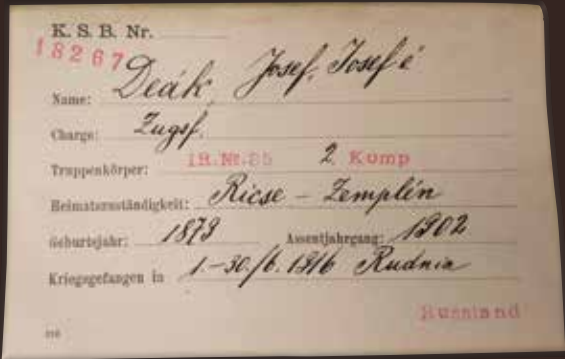 K. S. B. Nr.
18267
Name: Deák Josef, Josef é
Charge: Zugsf.
Truppenkörper: IR. Nr. 85 2. Komp
Heimatszuständigkeit: Ricse – Zemplén
Geburtsjahr: 1879 Assentjahrgang: 1902
Kriegsgefangen in 1.-30./6. 1916 Rudnia
Russland